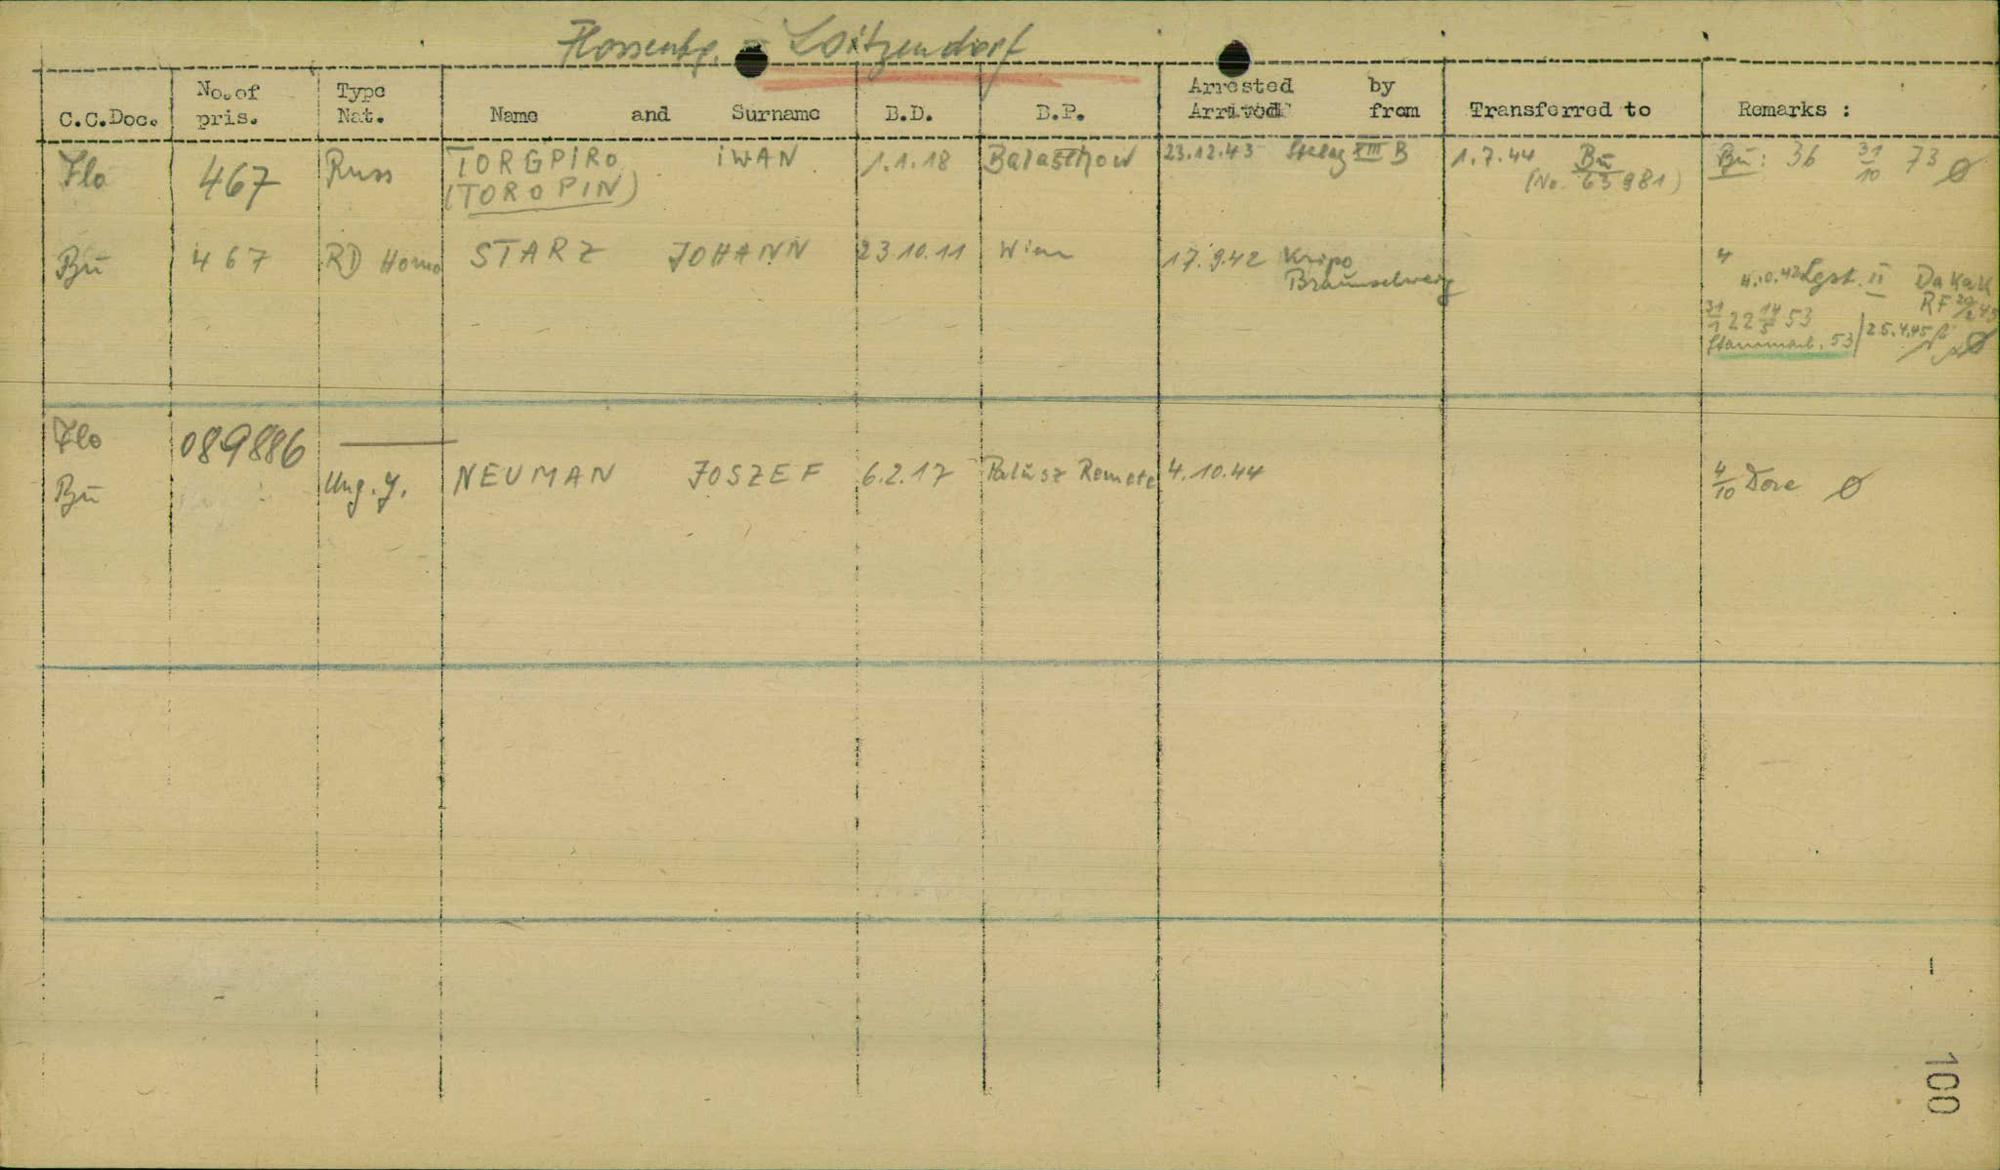 Flossenbg. - Loitzendorf
C.C.Doc. No. of pris. Type Nat. Name and Surname B.D. B.P. Arrested by Arrived from Transferred to Remarks :
Flo 467 Russ TORGPIRO IWAN 1.1.18 Balaschow 23.12.43 Stalag XIII B 1.7.44 Bu Bu: 36 31/10 73 Ø
(TOROPIN) (No. 63981)
Bu 467 RD Homo STARZ JOHANN 23 10.11 Wien 17.9.42 Kripo 4
Braunschweig 4.10.42 Lgst. II DaKaK
RF 20/2 45
31/1 22 14/5 53
53 / 25.4.45 Ø
Flo 089886 —
Bu Ung. J. NEUMAN JOSZEF 6.2.17 Palusz Remete 4.10.44 4/10 Dora Ø
- 100